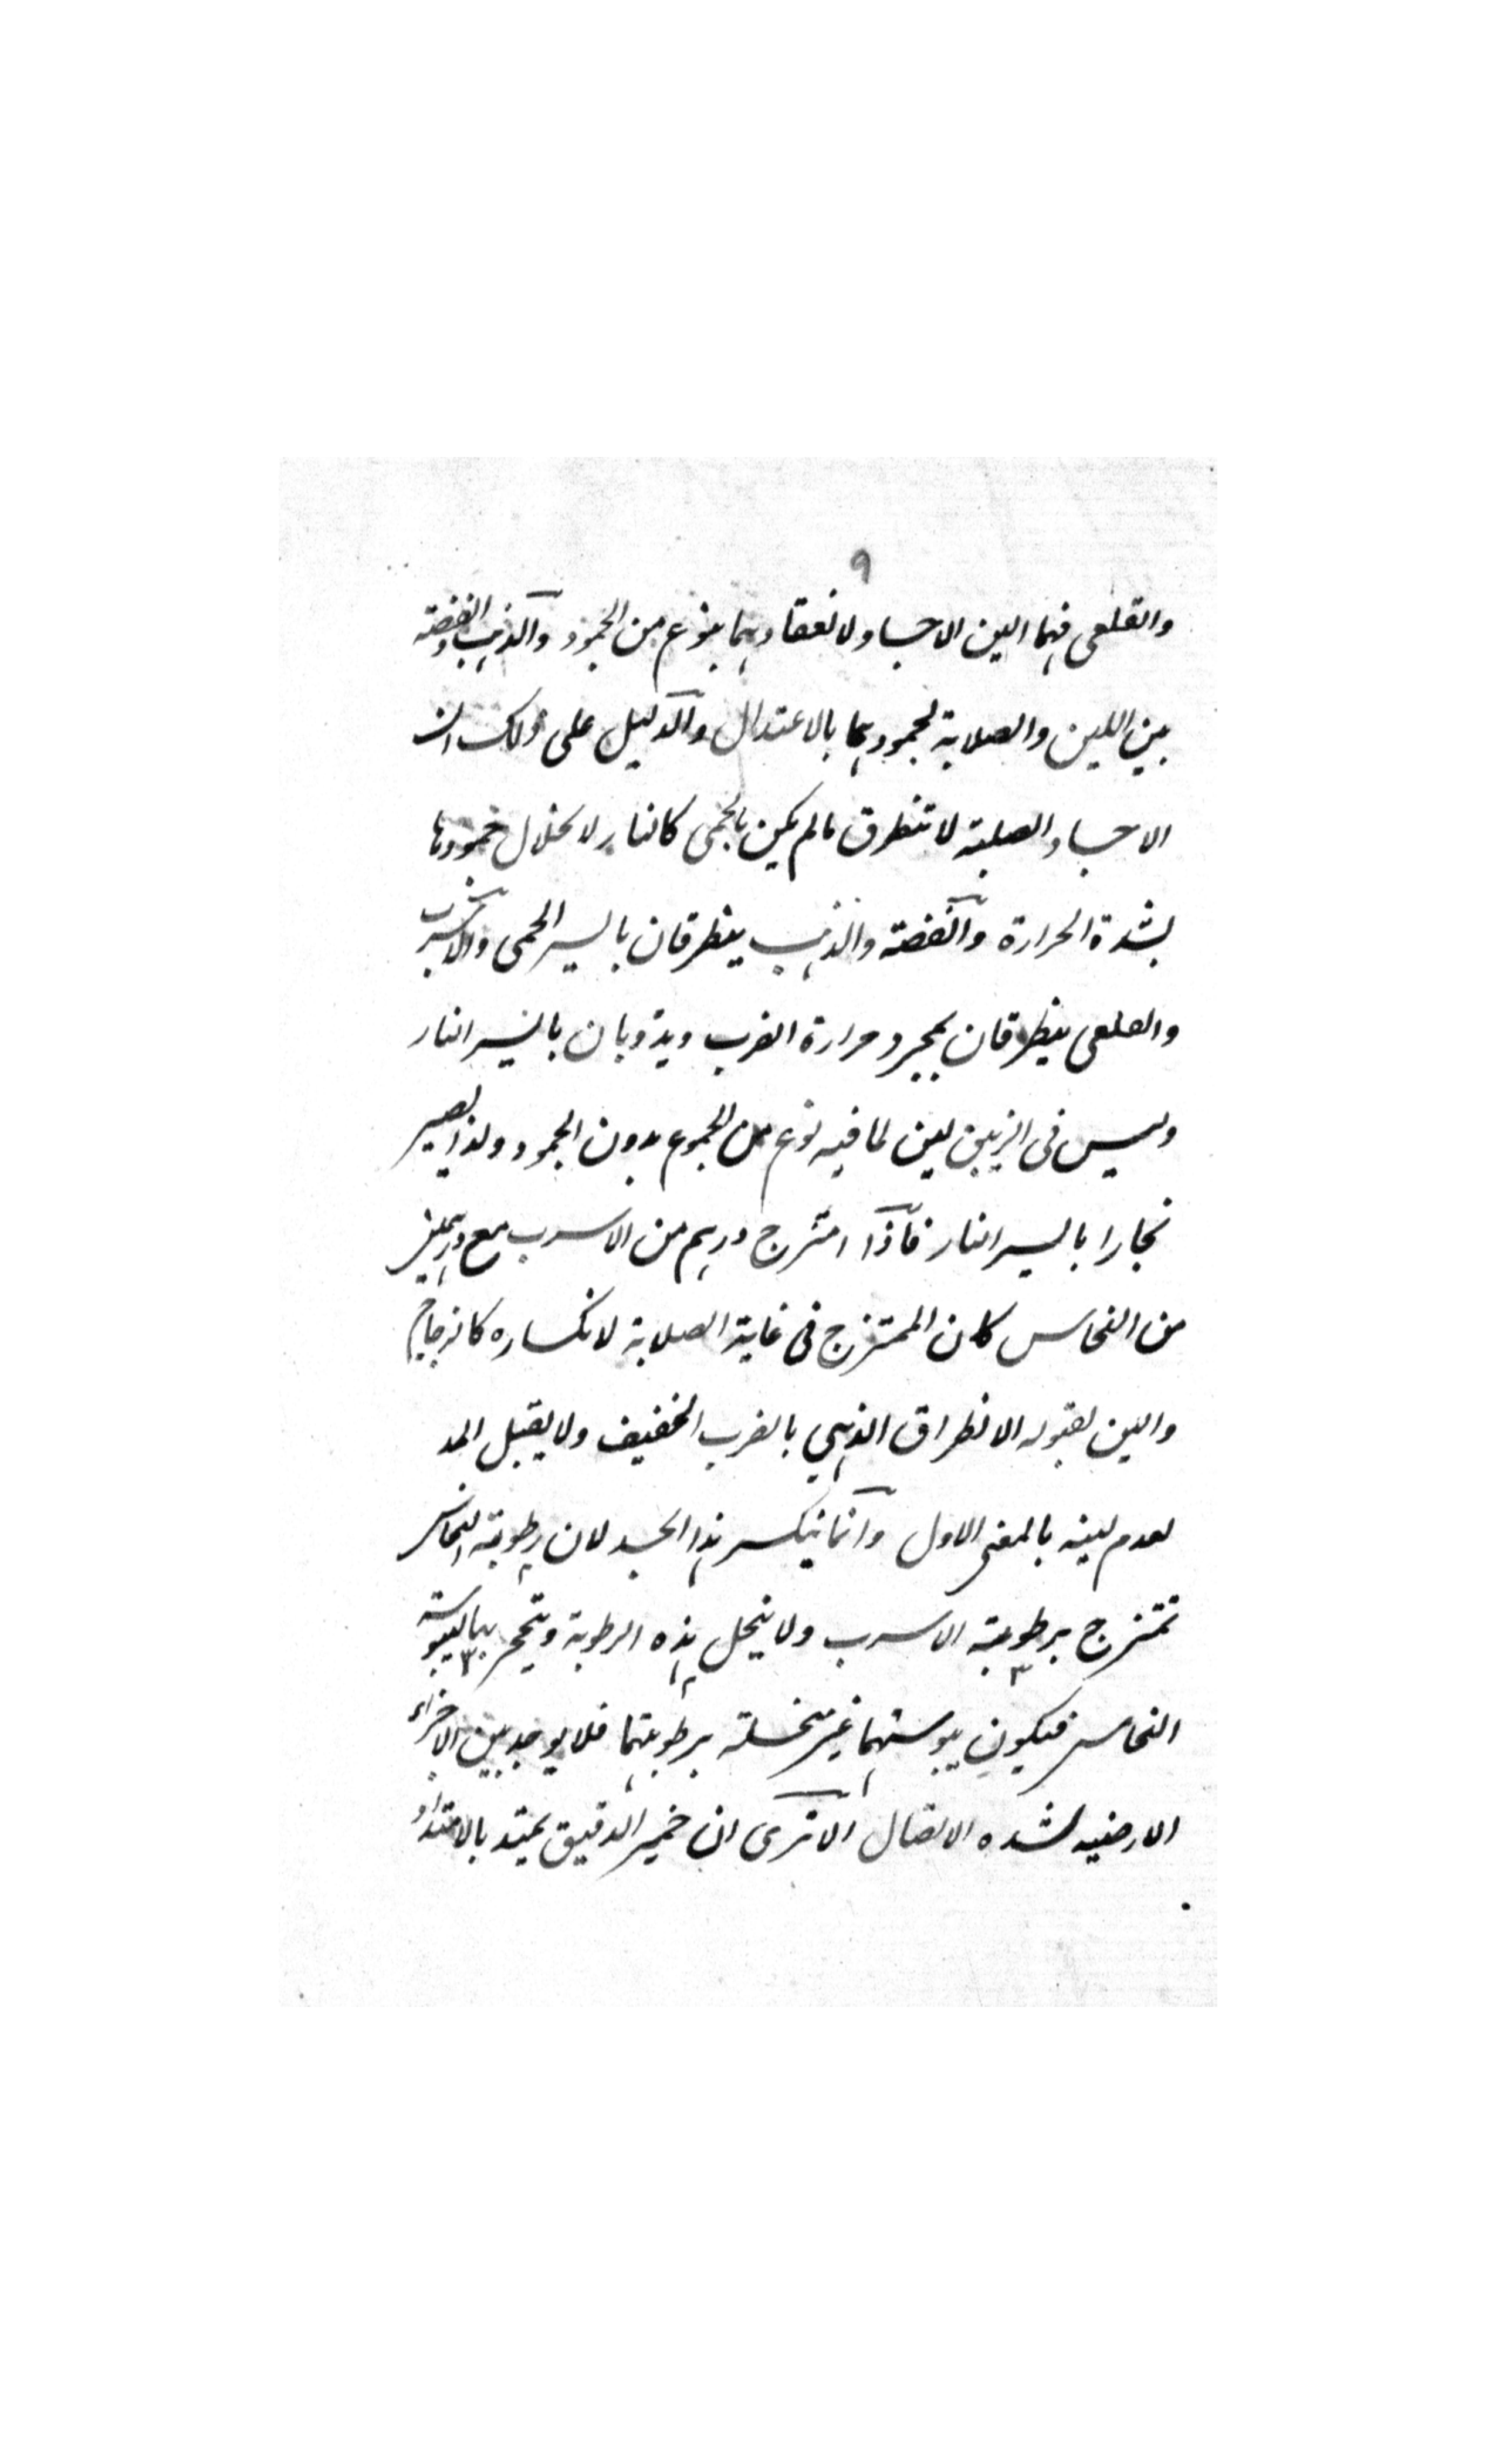 ٩
والقلعى فهما الين الاجساد لانعقادهما بنوع من الجمود والذهب والفضة
بين اللين والصلابة لجمودهما بالاعتدال والدليل على ذلك ان
الاجساد الصلبة لا تنطرق مالم يكن بالحمى كالنار لانحلال جمودها
بشدة الحرارة والفضة والذهب ينطرقان باليسير الحمى والاسرب
والقلعى ينطرقان بمجرد حرارة الضرب ويذوبان باليسير النار
وليس فى الزيبق لين لما فيه نوع من الجموع بدون الجمود ولذا يصير
بخارا باليسير النار فاذا امتزج درهم من الاسرب مع درهمين
من النحاس كان الممتزج فى غاية الصلابة لانكساره كالزجاج
والين لقبوله الانطراق الذهبي بالضرب الخفيف ولا يقبل المد
لعدم لينه بالمعنى الاول وانما ينكسر هذا الجسد لان رطوبة النحاس
تمتزج برطوبة الاسرب ولا ينحل بهذه الرطوبة ويتحجر بها يبوسة
النحاس فيكون يبوستهما غير منحلة برطوبتهما فلا يوجد بين الاجزاء
الارضيه لشده الاتصال الا ترى ان خمير الدقيق يمتد بالامتداد